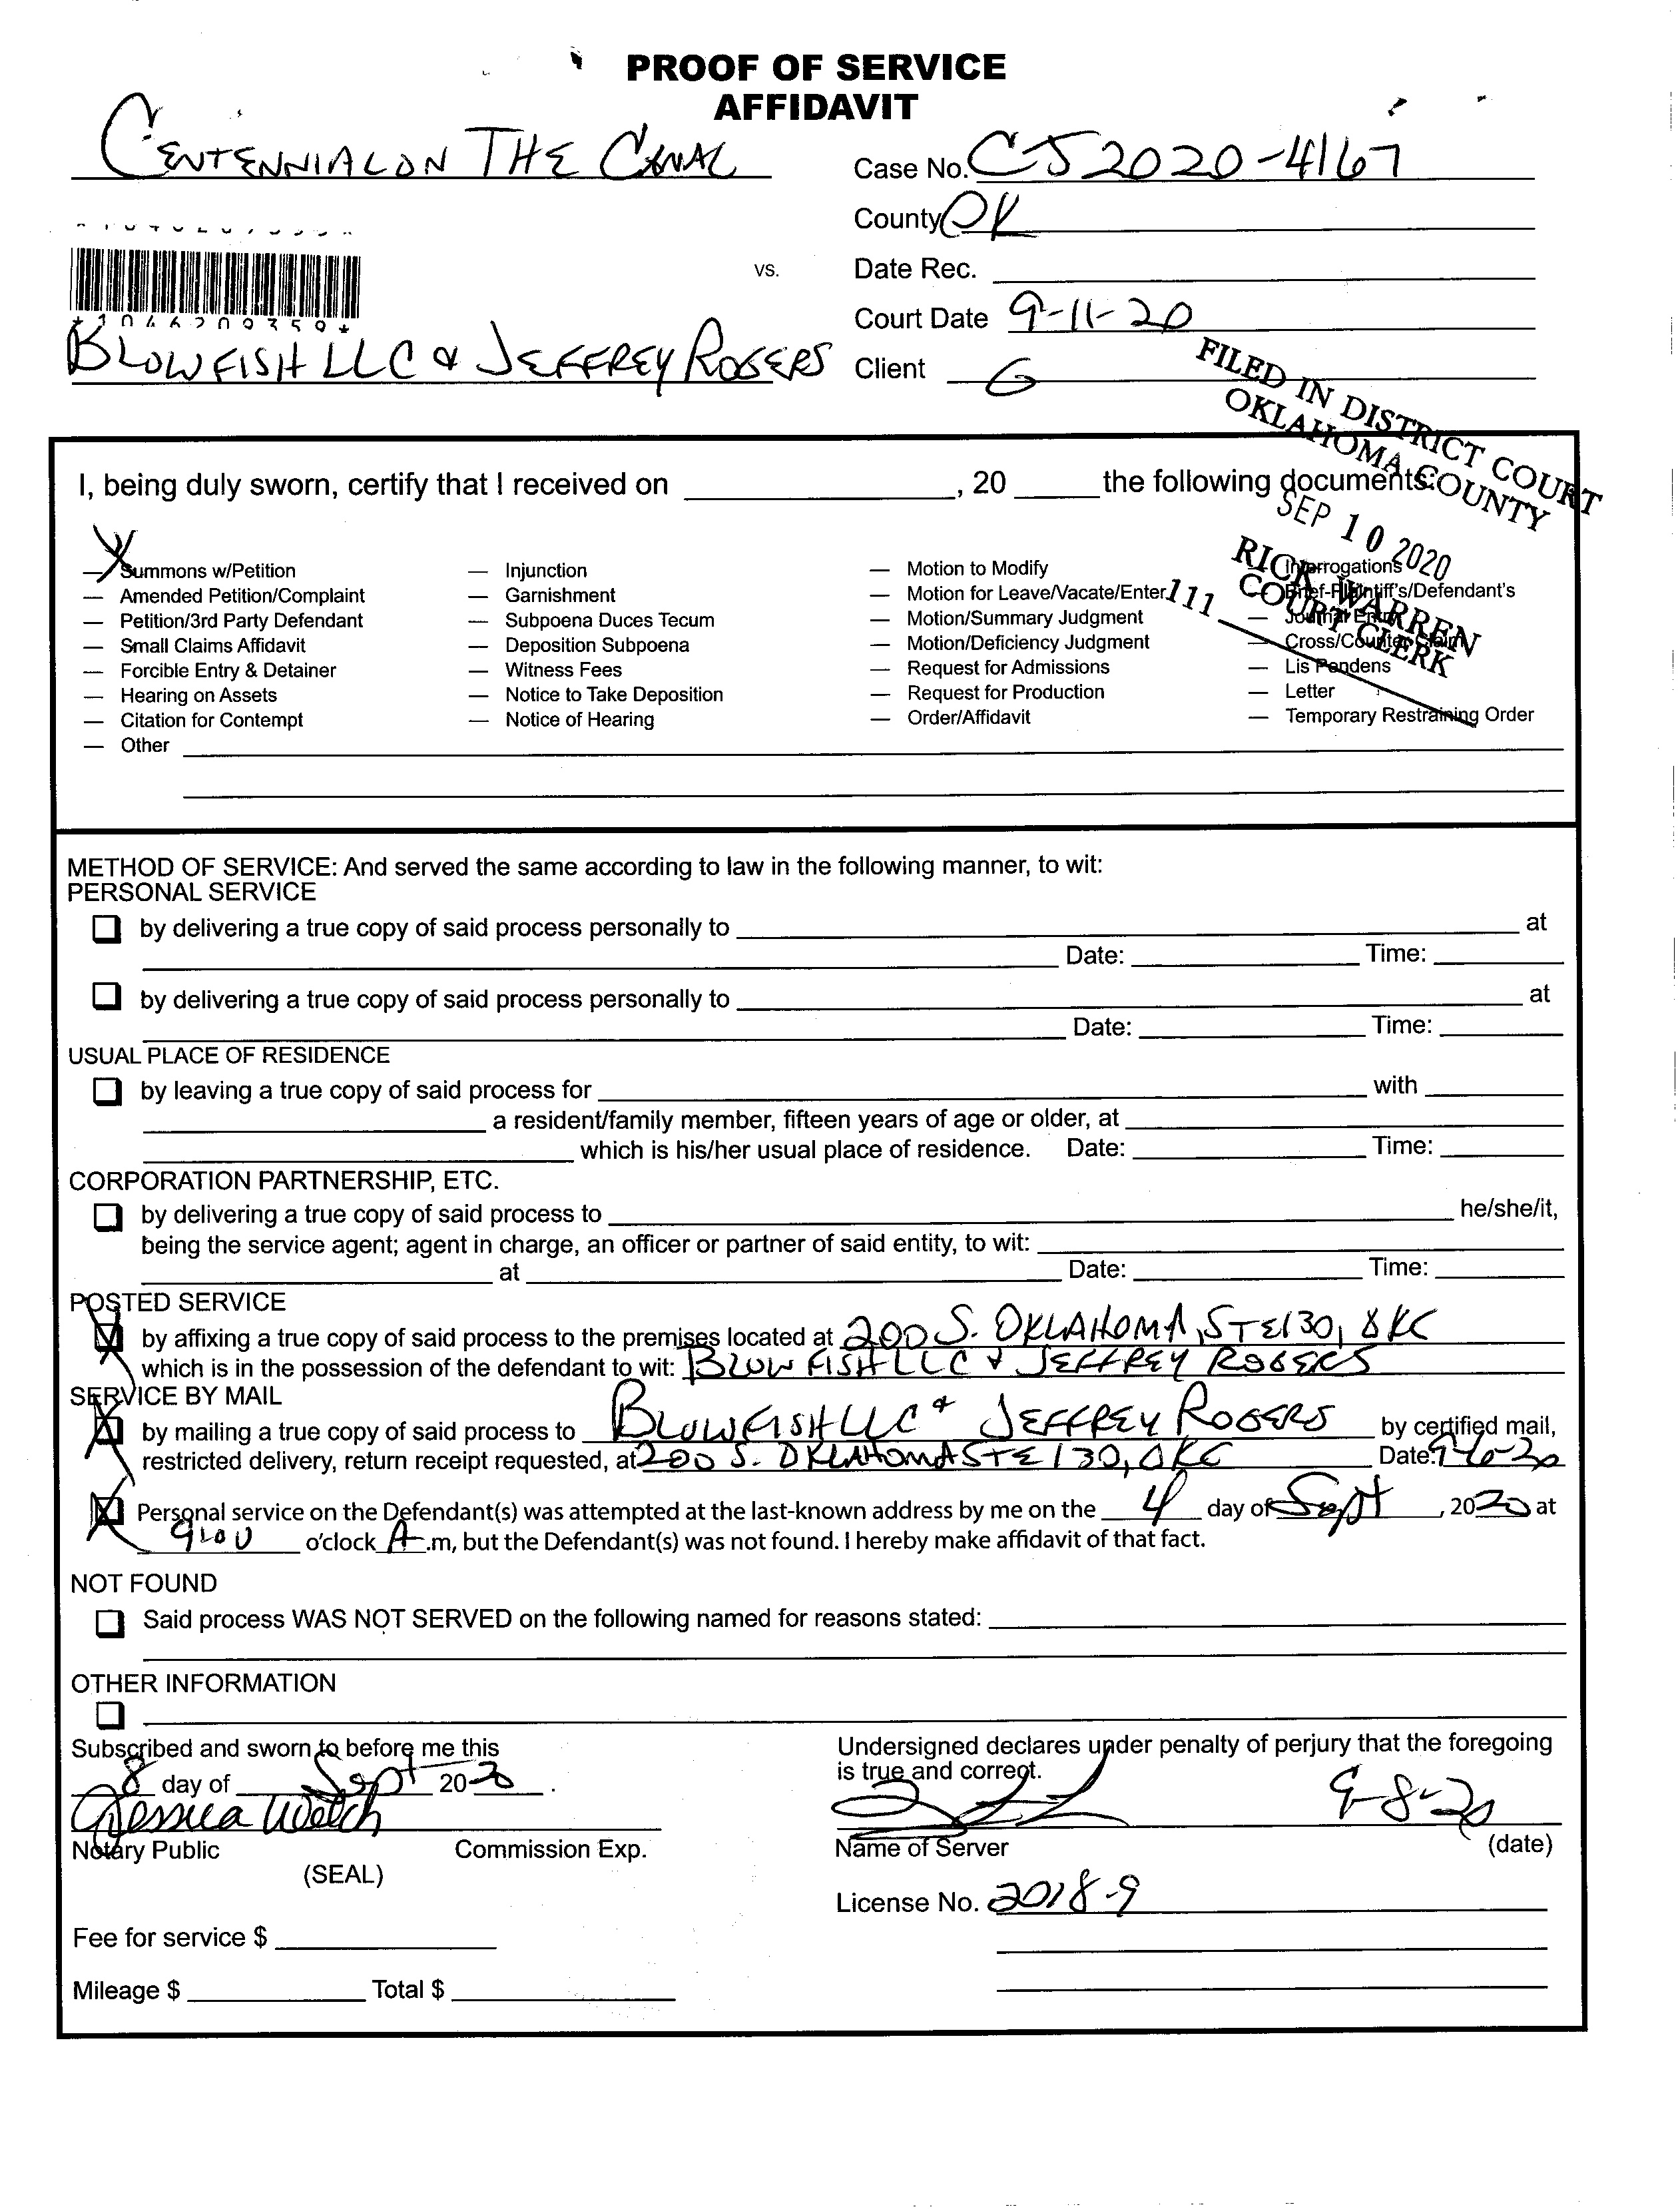 PROOF OF SERVICE
AFFIDAVIT
CENTENNIAL ON THE CANAL
Case No. CJ2020-4167
County OK
vs.
Date Rec.
*1046209359*
Court Date 9-11-20
BLOWFISH LLC & JEFFREY ROGERS
Client G
FILED IN DISTRICT COURT
OKLAHOMA COUNTY
SEP 10 2020
RICK WARREN
COURT CLERK
111
I, being duly sworn, certify that I received on , 20 the following documents:
Summons w/Petition
— Amended Petition/Complaint
— Petition/3rd Party Defendant
— Small Claims Affidavit
— Forcible Entry & Detainer
— Hearing on Assets
— Citation for Contempt
— Other
— Injunction
— Garnishment
— Subpoena Duces Tecum
— Deposition Subpoena
— Witness Fees
— Notice to Take Deposition
— Notice of Hearing
— Motion to Modify
— Motion for Leave/Vacate/Enter
— Motion/Summary Judgment
— Motion/Deficiency Judgment
— Request for Admissions
— Request for Production
— Order/Affidavit
Interrogations
Brief-Plaintiff's/Defendant's
Journal Entry
— Cross/Counter Claim
— Lis Pendens
— Letter
— Temporary Restraining Order
METHOD OF SERVICE: And served the same according to law in the following manner, to wit:
PERSONAL SERVICE
by delivering a true copy of said process personally to at
Date: Time:
by delivering a true copy of said process personally to at
Date: Time:
USUAL PLACE OF RESIDENCE
by leaving a true copy of said process for with
a resident/family member, fifteen years of age or older, at
which is his/her usual place of residence. Date: Time:
CORPORATION PARTNERSHIP, ETC.
by delivering a true copy of said process to he/she/it,
being the service agent; agent in charge, an officer or partner of said entity, to wit:
at Date: Time:
POSTED SERVICE
by affixing a true copy of said process to the premises located at 200 S. OKLAHOMA, STE 130, OKC
which is in the possession of the defendant to wit: BLOWFISH LLC & JEFFREY ROGERS
SERVICE BY MAIL
by mailing a true copy of said process to BLOWFISH LLC & JEFFREY ROGERS by certified mail,
restricted delivery, return receipt requested, at 200 S. OKLAHOMA STE 130, OKC Date:
Personal service on the Defendant(s) was attempted at the last-known address by me on the 4 day of Sept, 2020 at
o'clock A.m, but the Defendant(s) was not found. I hereby make affidavit of that fact.
NOT FOUND
Said process WAS NOT SERVED on the following named for reasons stated:
OTHER INFORMATION
Subscribed and sworn to before me this
8 day of Sept 2020.
Jessica Welch
Notary Public Commission Exp.
(SEAL)
Fee for service $
Mileage $ Total $
Undersigned declares under penalty of perjury that the foregoing
is true and correct.
9-8-20
Name of Server (date)
License No. 2018-9